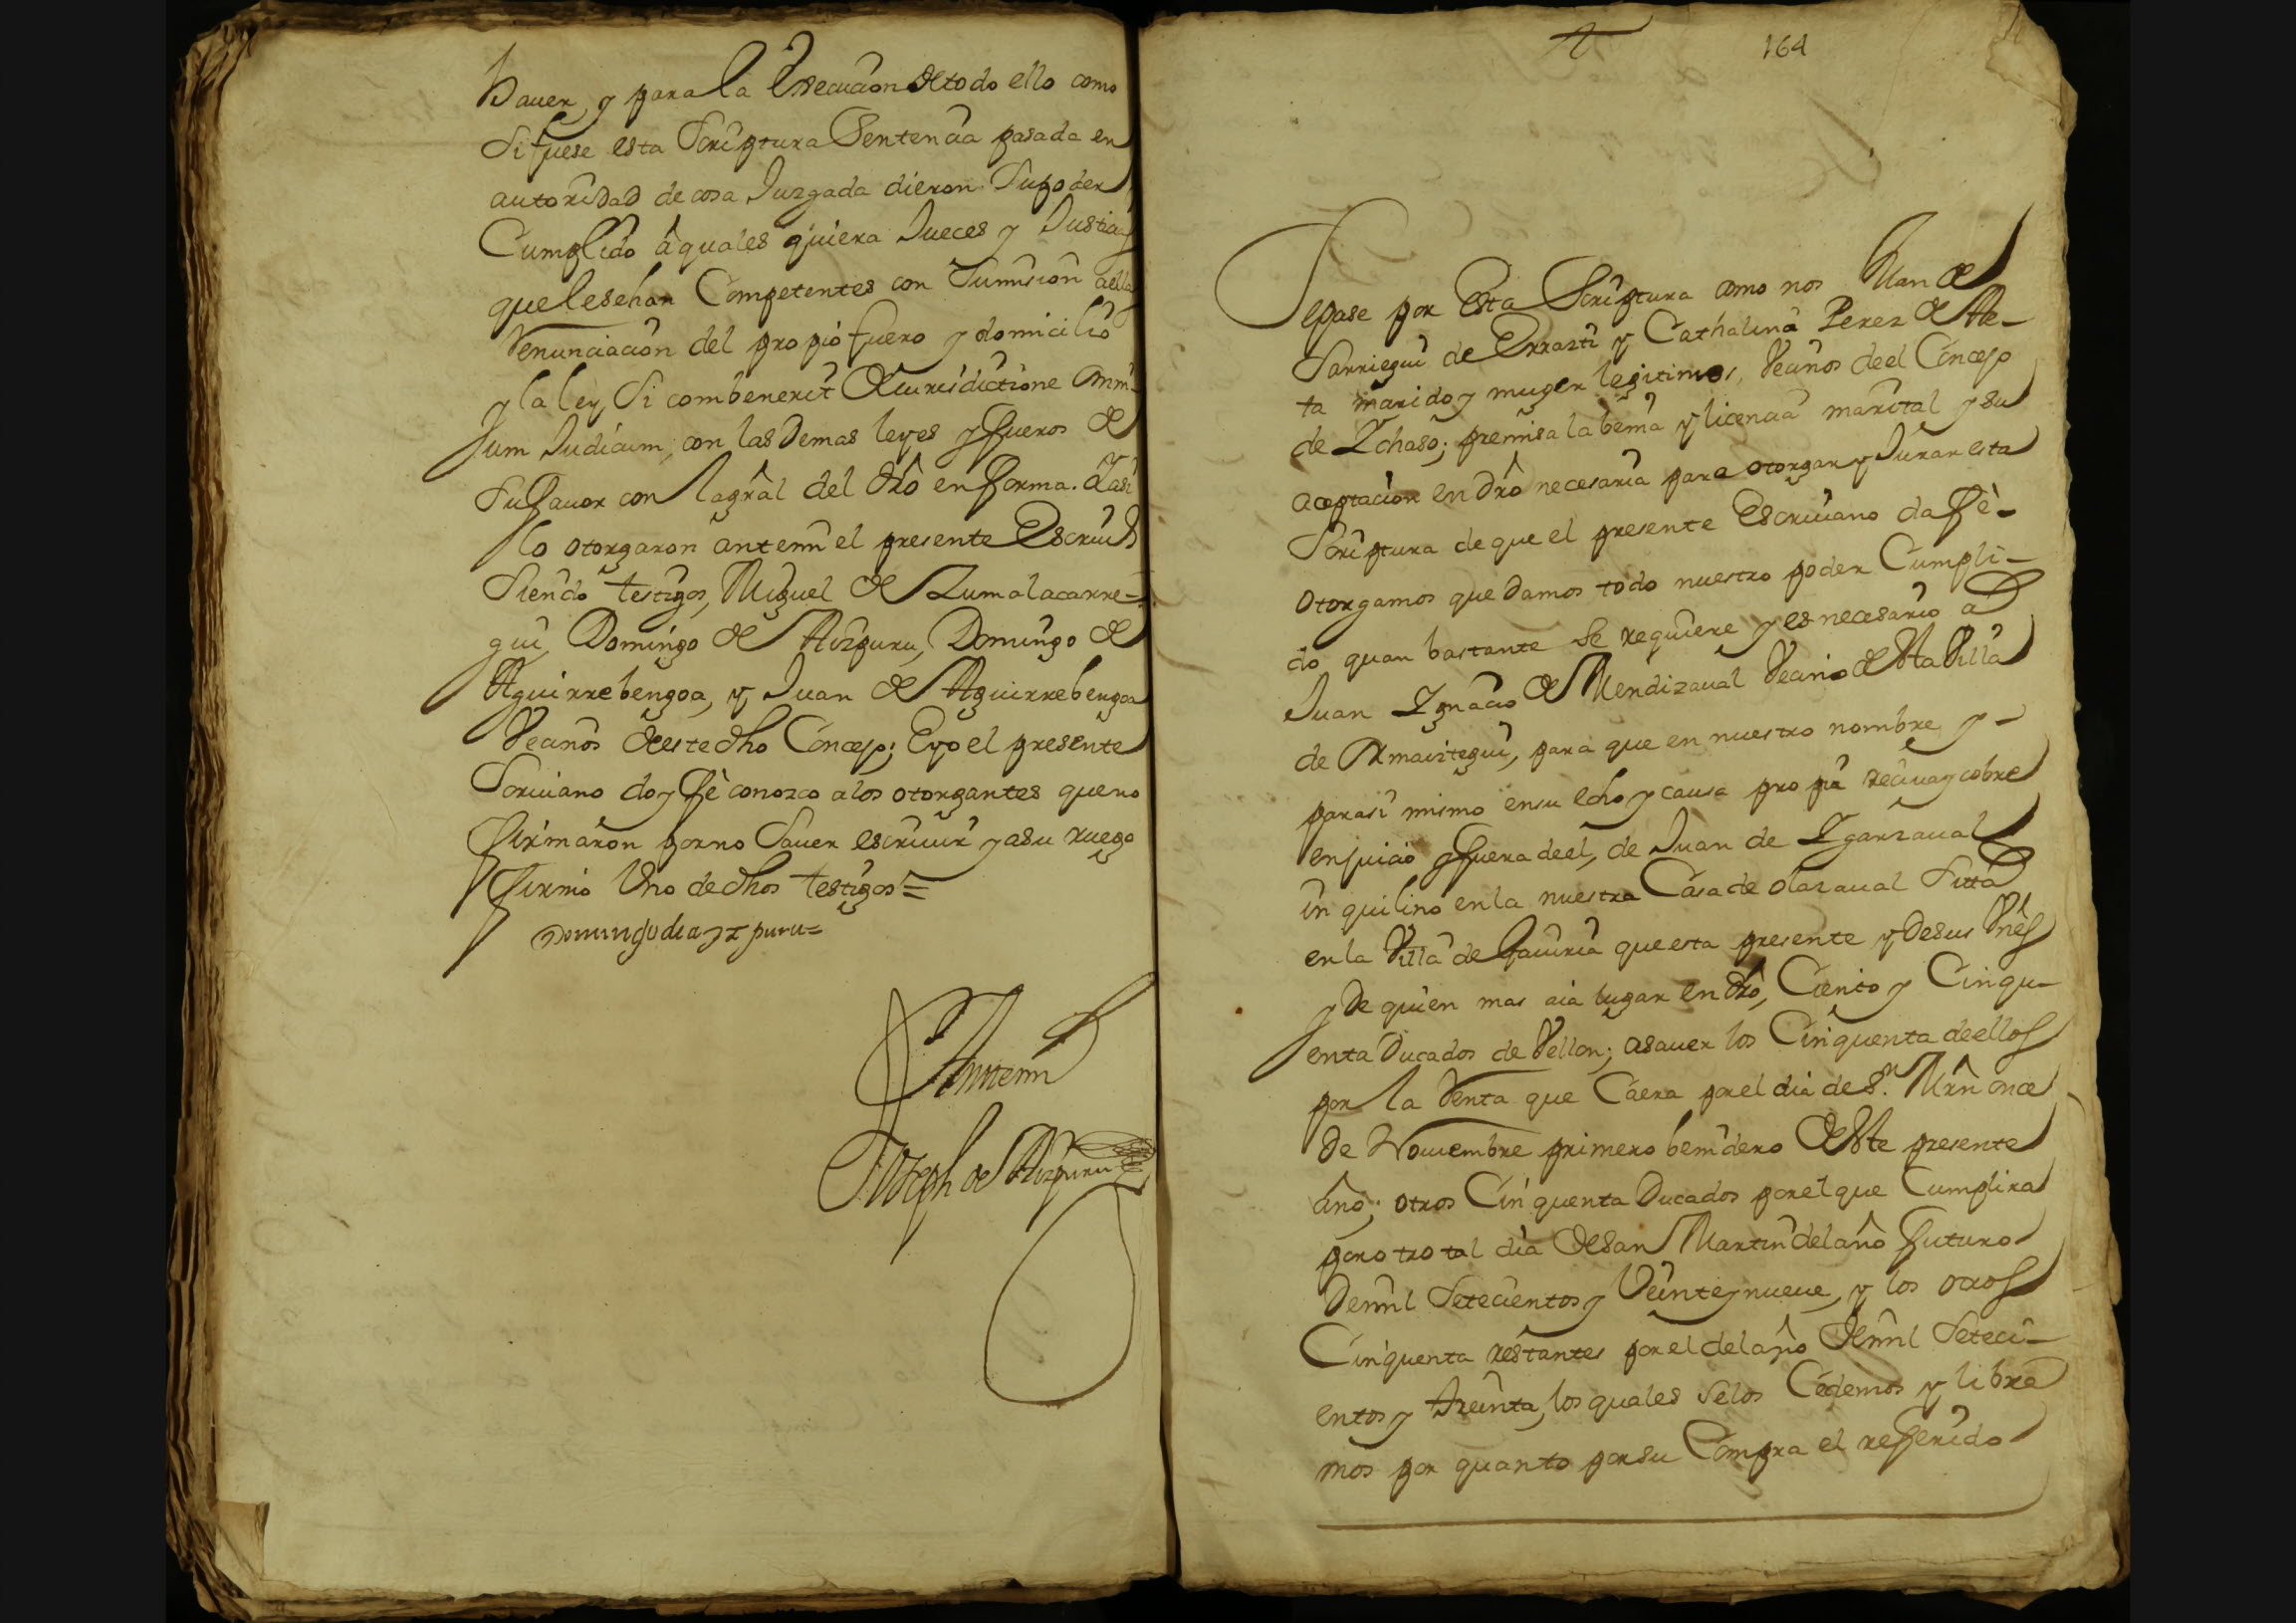 haver, y para la Execucion de todo ello como
si fuese esta Scriptura Sentencia pasada en
autoridad de cosa Juzgada dieron su poder
Cumplido â quales quiera Jueces y Justicias
que les sean Competentes con sumision a ellas
Renunciacion del propio fuero y domicilio
y la ley Si combenerit de iurisdictione omni
um Judicum, con las demas leyes y fueros de
su favor con la grâl del drô en forma. Y asi
lo otorgaron ante mi el presente Escriuº
siendo testigos, Miguel de Zumalacarre=
gui, Domingo de Aizpuru, Domingo de
Aguirrebengoa, y Juan de Aguirrebengoa
Vecinos de este dho Concejo; E yo el presente
Scriuano doy fè conozco a los otorgantes que no
firmaron por no saver escriuir y a su ruego
firmó Uno de dhos testigos =
Domingo de ayzpuru =
Ante mi
Joseph de Aizpuru
164
Sepase por Esta Scriptura como nos Juan de
Sarriegui de Errazti y Cathalina Perez de Ae-
ta marido y muger legitimos, Vecinos de el Concejo
de Ychaso; premisa la benia y licencia marital y su
aceptacion en drô necesaria para otorgar y Jurar esta
Scriptura de que el presente Escriuano da fè-
otorgamos que damos todo nuestro poder Cumpli-
do, quan bastante se requiere y es necesario a
Juan Ygnacio de Mendizaual Vecino de Sta Villa
de Amaiztegui, para que en nuestro nombre y-
para si mismo en su echo y causa propia reciua y cobre
en juicio y fuera de el, de Juan de Ygarzaual
inquilino en la nuestra Casa de olazaual Sitta
en la Villa de Gauiria que esta presente y de sus Vnês
y de quien mas aia lugar en drô, Ciento y Cinqu-
enta Ducados de Vellon; a sauer los Cinquenta de ellos
por la Renta que Caera por el dia de Sn. Mrñ once
de Nouiembre primero benidero de este presente
año; otros Cinquenta Ducados por el que Cumplira
por otro tal dia de San Martin del año futuro
de mil Setecientos y Veinte y nueue, y los otros
Cinquenta restantes por el del año de mil Seteci-
entos y treinta, los quales se los Cedemos y libra
mos por quanto por su Compra el referido